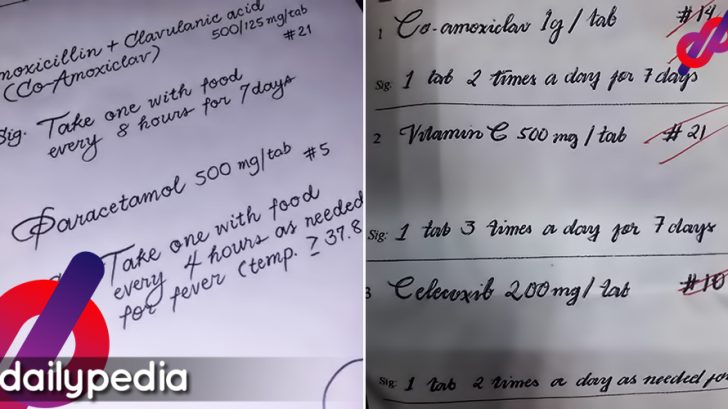 moxicillin + Clavulanic acid
(Co-Amoxiclav) 500/125 mg/tab
#21
Sig. Take one with food
every 8 hours for 7days
Paracetamol 500 mg/tab #5
Take one with food
every 4 hours as needed
for fever (temp. ≥ 37.8
dailypedia
1 Co-amoxiclav 1g / tab #14
Sig: 1 tab 2 times a day for 7 days
2 Vitamin C 500 mg / tab #21
Sig: 1 tab 3 times a day for 7 days
3 Celecoxib 200 mg / tab #10
Sig: 1 tab 2 times a day as needed for